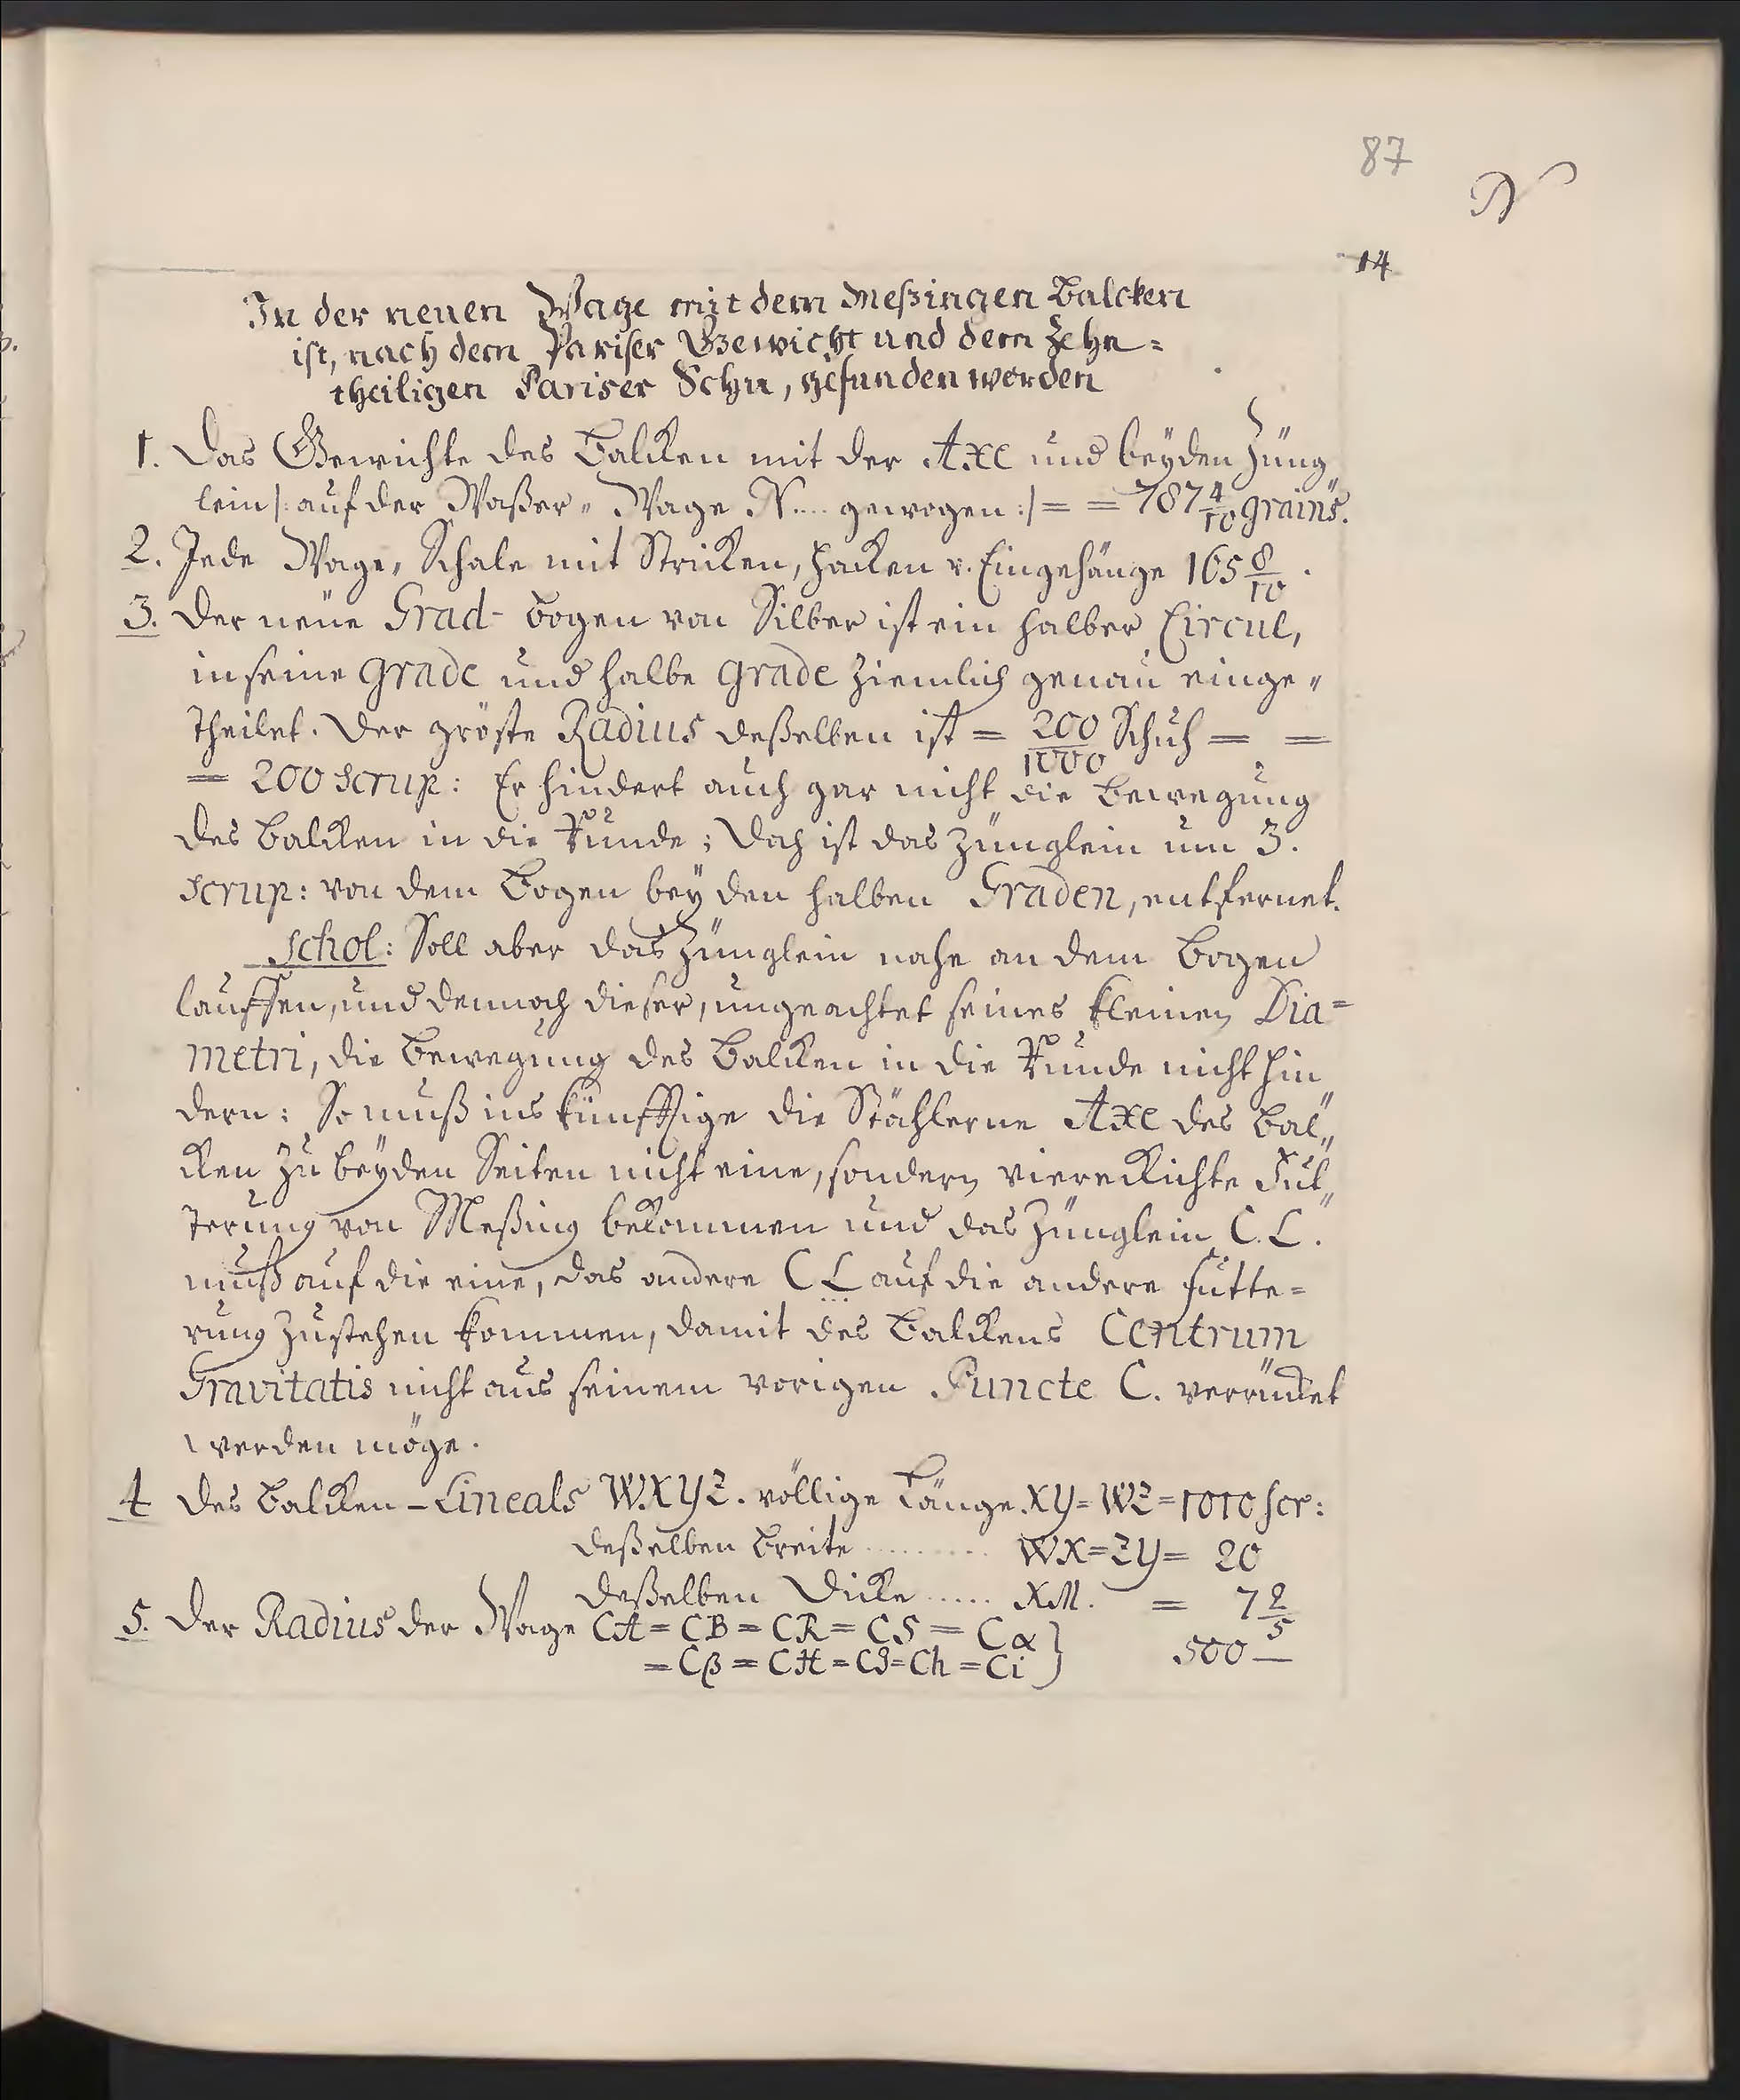 87
N
14
In der neuen Wage mit dem Meßingen Balcken
ist, nach dem Pariser Gewicht und dem Zehn=
theiligen Pariser Schu, gefunden worden
1. Das Gewichte des Balcken mit der Axe und beyden Züng„
lein /: auf der Waßer„Wage N.... gewogen :/ = = 787 4/10 grains.
2. Jede Wage„Schale mit Stricken, Hacken u. Eingehänge 165 8/10.
3. Der neüe Grad-bogen von Silber ist ein halber Circul,
in seine grade und halbe grade ziemlich genau einge„
theilet. Der gröste Radius deßelben ist = 200/1000 Schuh = =
= 200 scrup: Er hindert auch gar nicht die Bewegung
des Balcken in die Runde; Doch ist das Zünglein um 3.
scrup: von dem Bogen bey den halben Graden, entfernet.
Schol: Soll aber das Zünglein nahe an dem Bogen
lauffen, und dennoch dieser, ungeachtet seines kleinen Dia=
metri, die Bewegung des Balcken in die Runde nicht hin„
dern: So muß ins künfftige die Stählerne Axe des Bal„
cken zu beyden Seiten nicht eine, sondern viereckichte Fut„
terung von Meßing bekommen und das Zünglein C.L.
muß auf die eine, das andere CL auf die andere Futte=
rung zustehen kommen, damit des Balckens Centrum
Gravitatis nicht aus seinem vorigen Puncte C. verrücket
werden möge.
4 Des Balcken-Lineals WXYZ. völlige Länge XY=WZ=1010 scr:
deßelben Breite ......... WX=ZY= 20
deßelben Dicke ..... XM. = 7 2/5
5. Der Radius der Wage CA=CB=CR=CS=Cα }
=Cβ=CH=CJ=Ch=Ci } 500 —